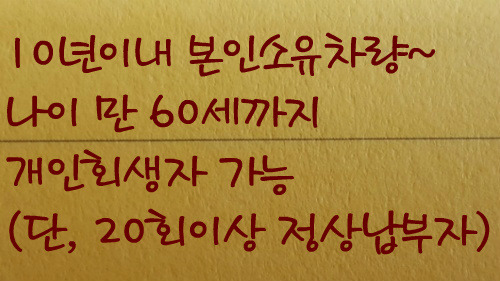 10년이내 본인소유차량~
나이 만 60세까지
개인회생자 가능
(단, 20회이상 정상납부자)